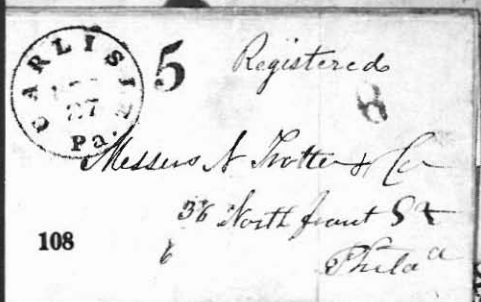 CARLISLE
27
Pa.
5
Registered
8
Messers N Trotter & Co
36 North front St
Phila^a
108
6